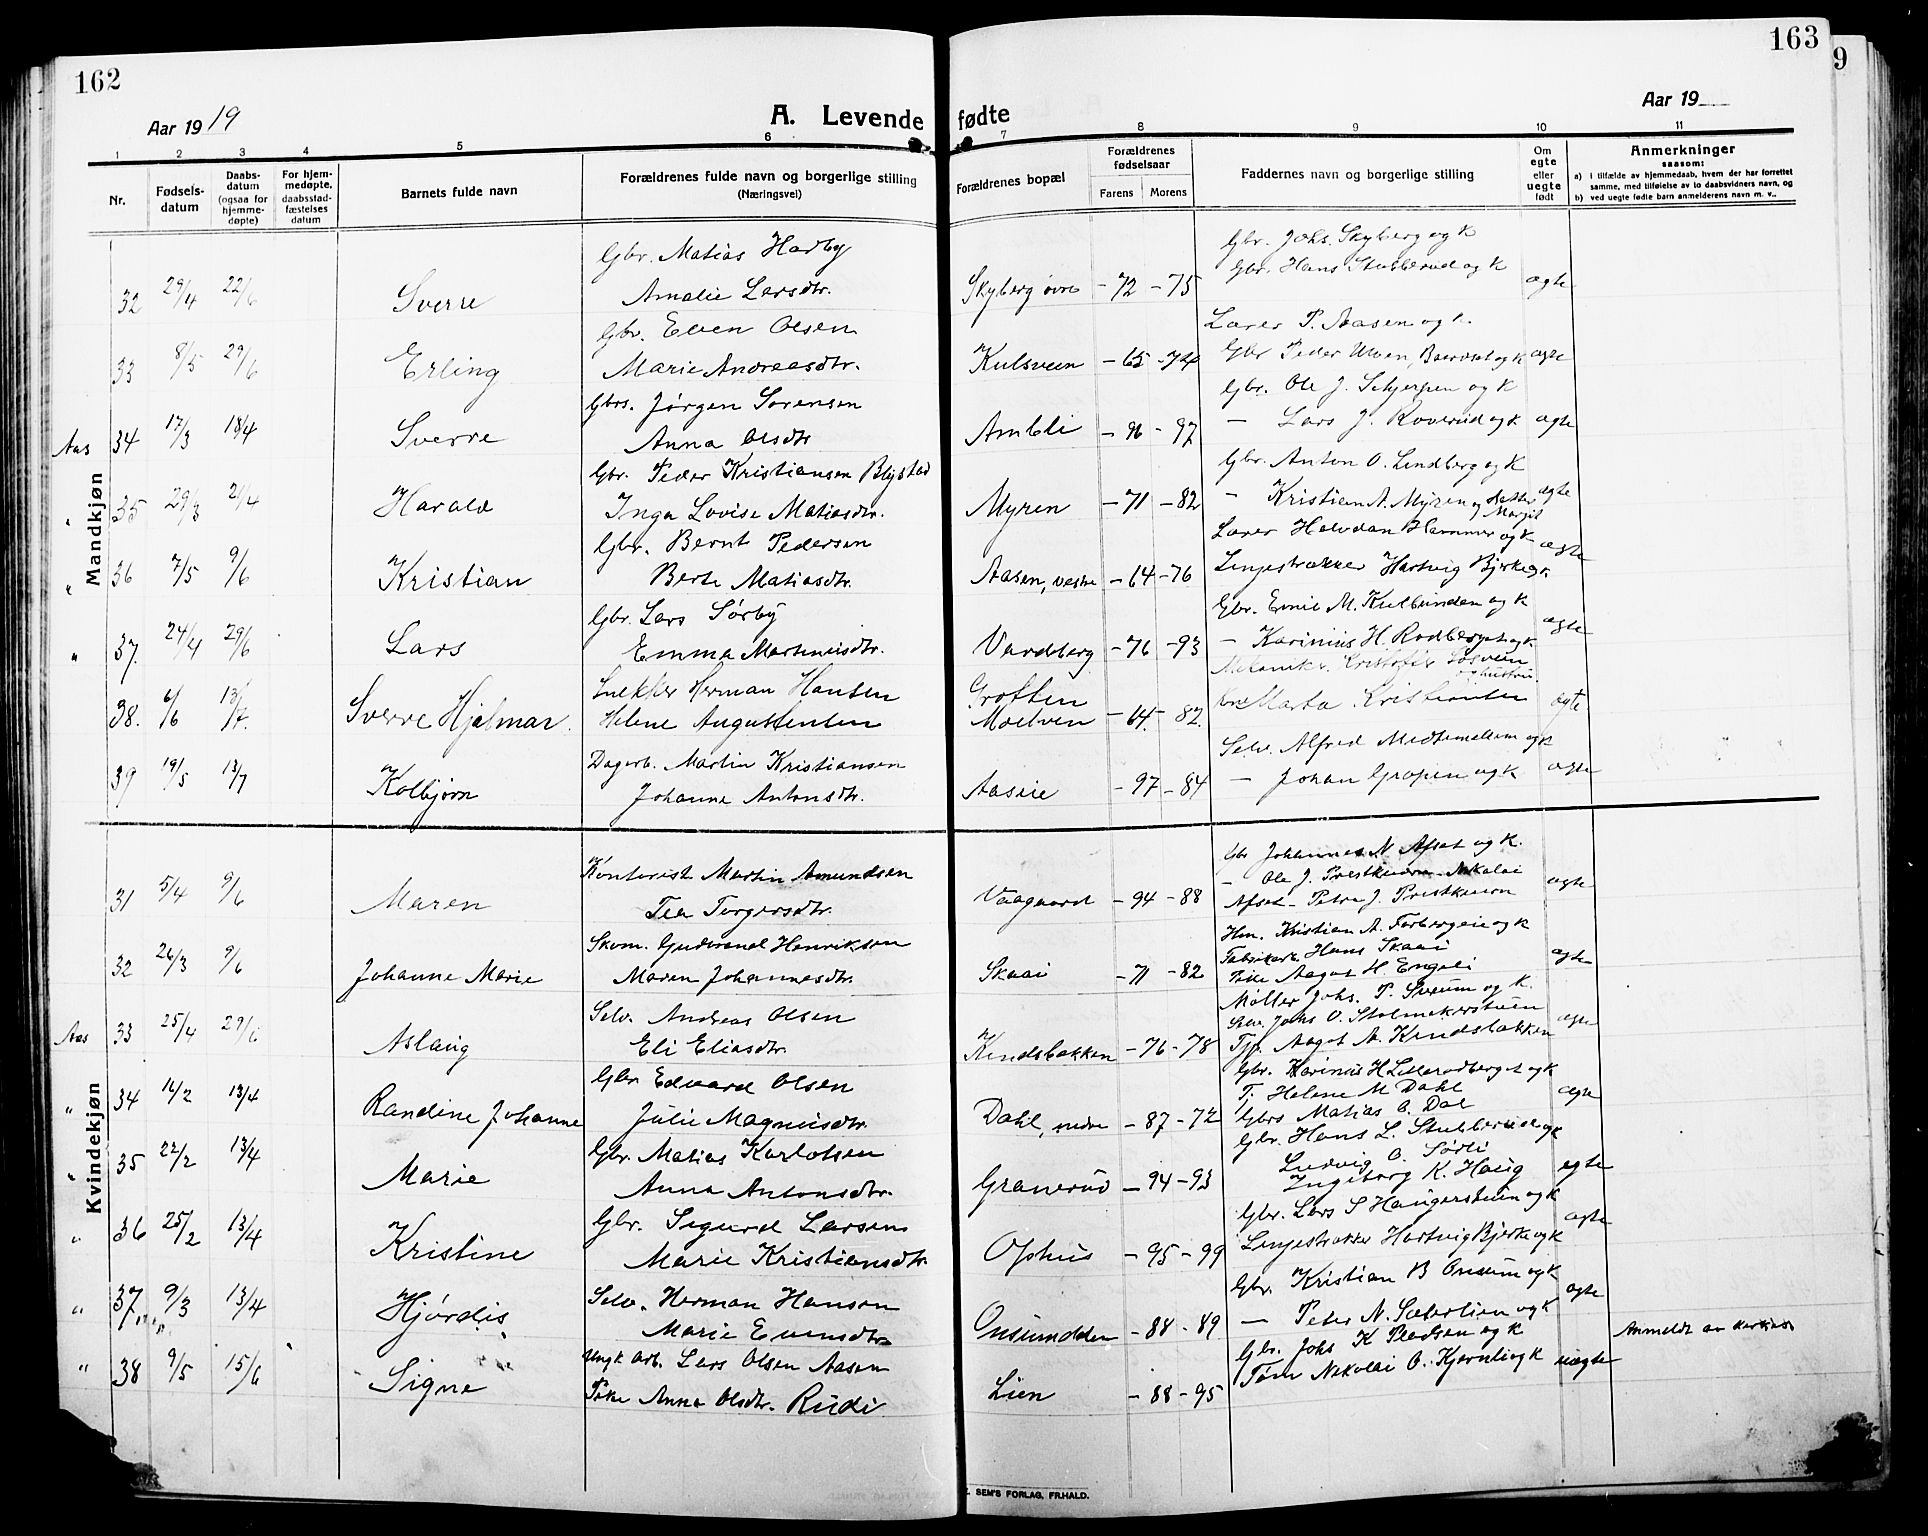 162
163
9
Aar 1919
A. Levende fødte
Aar 19
1 2 3 4 5 6 7 8 9 10 11
Nr.
Fødsels-
datum
Daabs-
datum
(ogsaa for
hjemme-
døpte)
For hjem-
medøpte,
daabsstad-
fæstelses
datum
Barnets fulde navn
Forældrenes fulde navn og borgerlige stilling
(Næringsvei)
Forældrenes bopæl
Forældrenes
fødselsaar
Farens Morens
Faddernes navn og borgerlige stilling
Om
egte
eller
uegte
født
Anmerkninger
saasom:
a) i tilfælde av hjemmedaab, hvem der har forrettet
samme, med tilføielse av to daabsvidners navn, og
b) ved uegte fødte barn anmelderens navn m. v..
Mandkjøn
Gbr. Matias Harby Gbr. Johs. Skyberg og K
32 29/4 22/6 Sverre Amalie Larsdtr. Skyberg øvre - 72 - 75 Gbr. Hans Stubberud og K ægte
Gbr. Even Olsen Lærer P. Aasen og K.
33 8/5 29/6 Erling Marie Andreasdtr. Kulsveen - 65 - 74 Gbr Peder Ulven, og K ægte
Gbrs. Jørgen Sørensen Gbr. Ole J. Schjerpen og K
Aas 34 17/3 13/4 Sverre Anna Olsdtr Ambli - 96 - 97 - Lars J. Roverud og K ægte
Gbr. Peder Kristiansen Blystad Gbr. Anton O. Lundberg og K
" 35 29/3 21/4 Harald Inga Lovise Matiasdtr. Myren - 71 - 82 - Kristian A. Myren og datter Margit ægte
Gbr. Bernt Pedersen Lærer Halvdan Hammer og K
" 36 7/5 9/6 Kristian Berte Matiasdtr. Aasen, vestre - 64 - 76 Linjestrækker Hartvig Bjerke ægte
Gbr. Lars Sørby Gbr. Emil M. Kulbunden og K
" 37. 24/4 29/6 Lars Emma Martiniusdtr. Vardberg - 76 - 93 - Karinius H. Rodberget og K. ægte
Snekker Herman Hansen Grøften Kristofer og hustru
38. 6/6 13/7. Sverre Hjalmar. Helene Augustensen Moelven - 64. - 82. Marta Kristiansen ægte
Dagarb. Martin Kristiansen Selv. Alfred Medtemellem og K
39 19/5 13/7 Kolbjørn Johanne Antonsdtr. Aaslie - 97 - 84 - Johan Grøpen og K ægte
Kvindekjøn
Kontorist Martin Amundsen Gbr Johannes N Afset og K.
31 5/4 9/6 Maren Tea Torgersdtr. Vaagaard - 94 - 88 - Ole J. Prestkværn Nikolai ægte
Afset - Petra J. Prestkværn
Skom. Gudbrand Henriksen Hm. Kristian A. Farbergeie og K
32 26/3 9/6 Johanne Marie Maren Johannesdtr. Skaai - 71 - 82 Fabrikarb. Hans Skaai ægte
Pike Aagot H. Engeli
Selv. Andreas Olsen Møller Johs. P. Sveum og K.
Aas 33 25/4 29/6 Aslaug Eli Eliasdtr. Kindsbakken - 76 - 78 Selv. Johs O. Stolmakerstuen ægte
Tjp. Aagot A. Kindsbakken
Gbr Edvard Olsen Gbr. Karinius H Lillerodberget og K
" 34 16/2 13/4 Randine Johanne Julie Magnusdtr. Dahl, nedre - 87 - 72 T. Helene M Dahl ægte
Gbrs Matias O. Dal
Gbr. Matias Karlotsen Gbr. Hans L. Stubberud og K
" 35 22/2 13/4 Marie Anna Antonsdtr. Granerud - 94 - 93 Ludvig O. Sørli ægte
Ingeborg K. Haug
Gbr. Sigurd Larsen Gbr. Lars S Haugerstuen og K
" 36 25/2 13/4 Kristine Marie Kristiansdtr. Ophus - 95 - 99 Linjestrækker Hartvig Bjerke og K ægte
Selv. Herman Hansen Gbr. Kristian B Onsum og K
" 37 9/3 13/4 Hjørdis Marie Evensdtr Onsumdden - 88 - 89 - Peter N. Sæterlien og K ægte
Ungk arb. Lars Olsen Aasen Gbr. Johs K Pladsen og K
" 38 9/5 15/6 Signe Pike Anna Olsdtr. Rudi Lien - 88 - 95 Tøm Nikolai O. Kjernli og K uægte Anmeldt av
SEM'S FORLAG, FR.HALD.